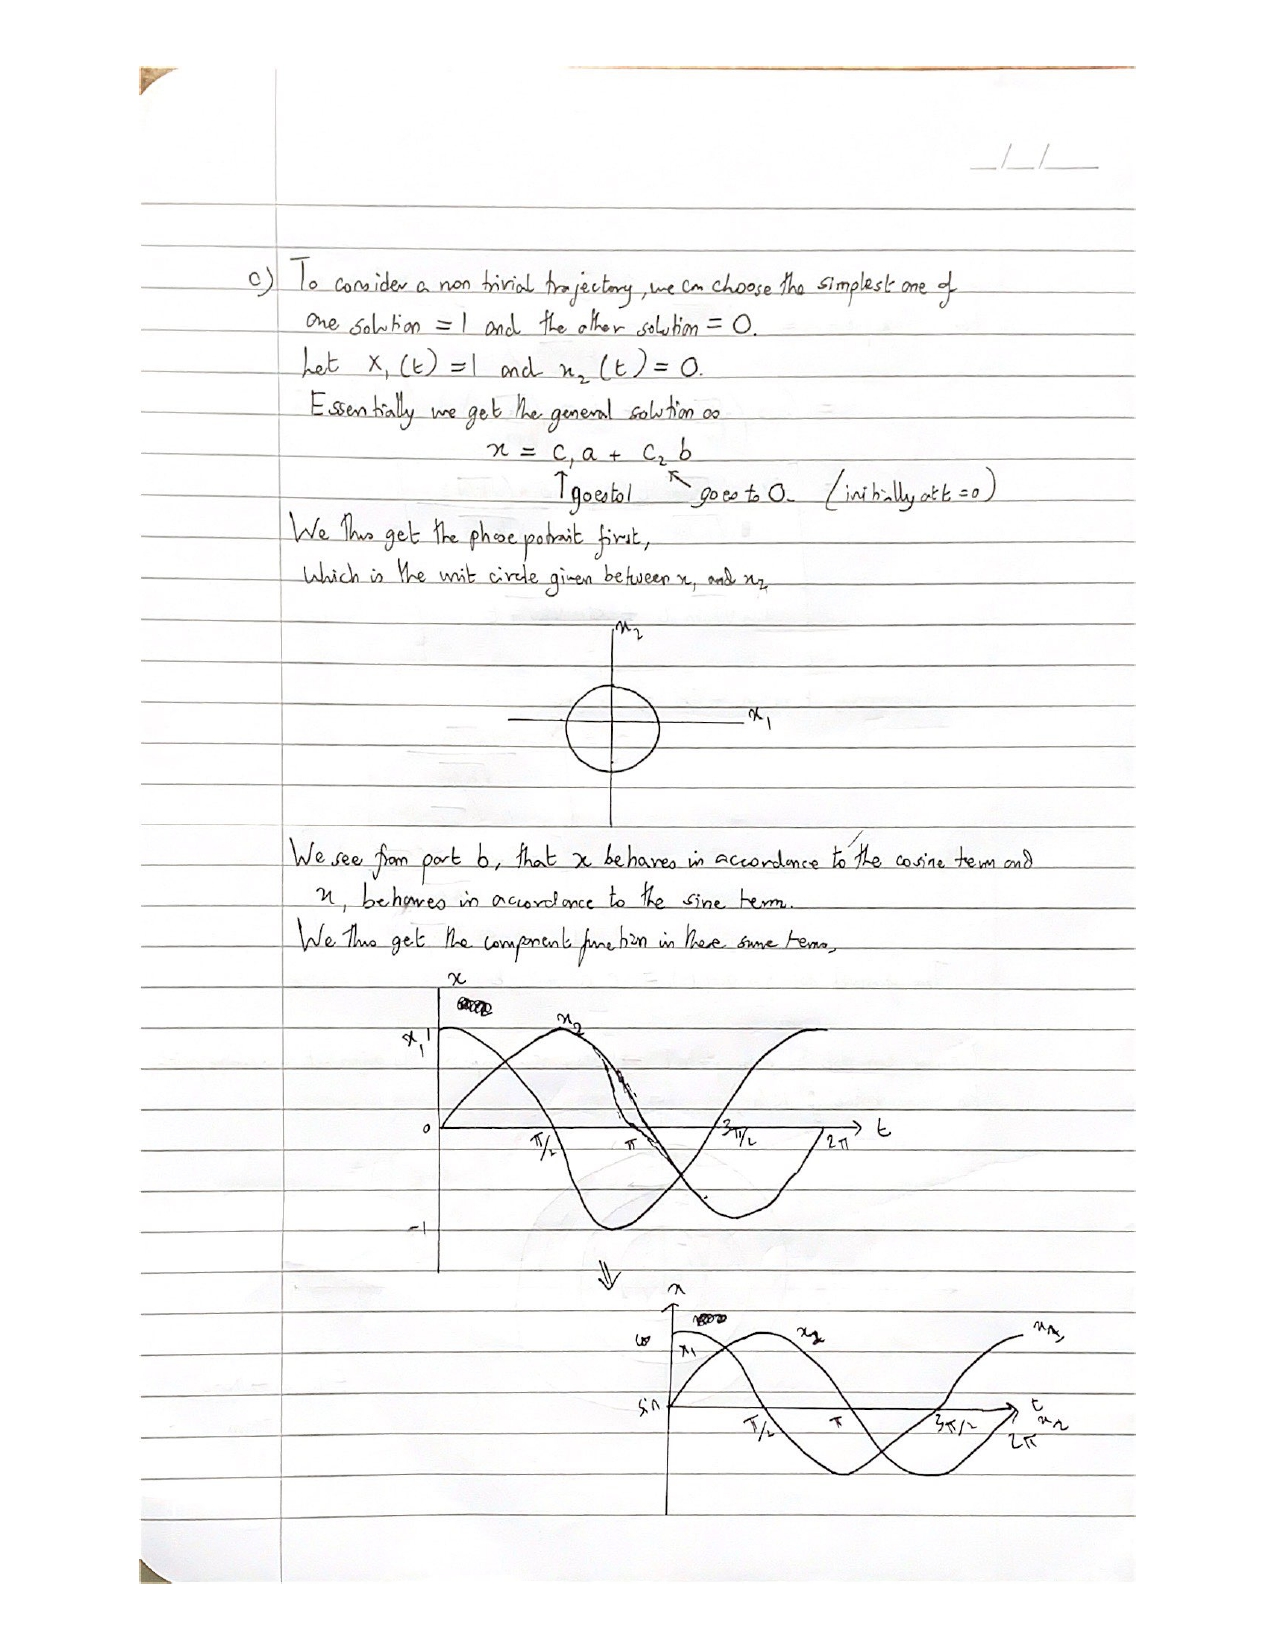 _/_/__
c) To consider a non trivial trajectory, we can choose the simplest one of
one solution = 1 and the other solution = 0.
Let x₁(t) = 1 and x₂(t) = 0.
Essentially we get the general solution as
x = c₁a + c₂b
↑ goes to 1 ↖ goes to 0. (initially at t = 0)
We thus get the phase potrait first,
Which is the unit circle given between x₁ and x₂
x₂
x₁
We see from part b, that x behaves in accordance to the cosine term and
x, behaves in accordance to the sine term.
We thus get the component function in these same terms,
x
x₁ 1
x₂
0
π/2
π
3π/2
2π
t
-1
⇓
x
x₁
x₂
sin
π/2
π
3π/2
t
x₂
2π